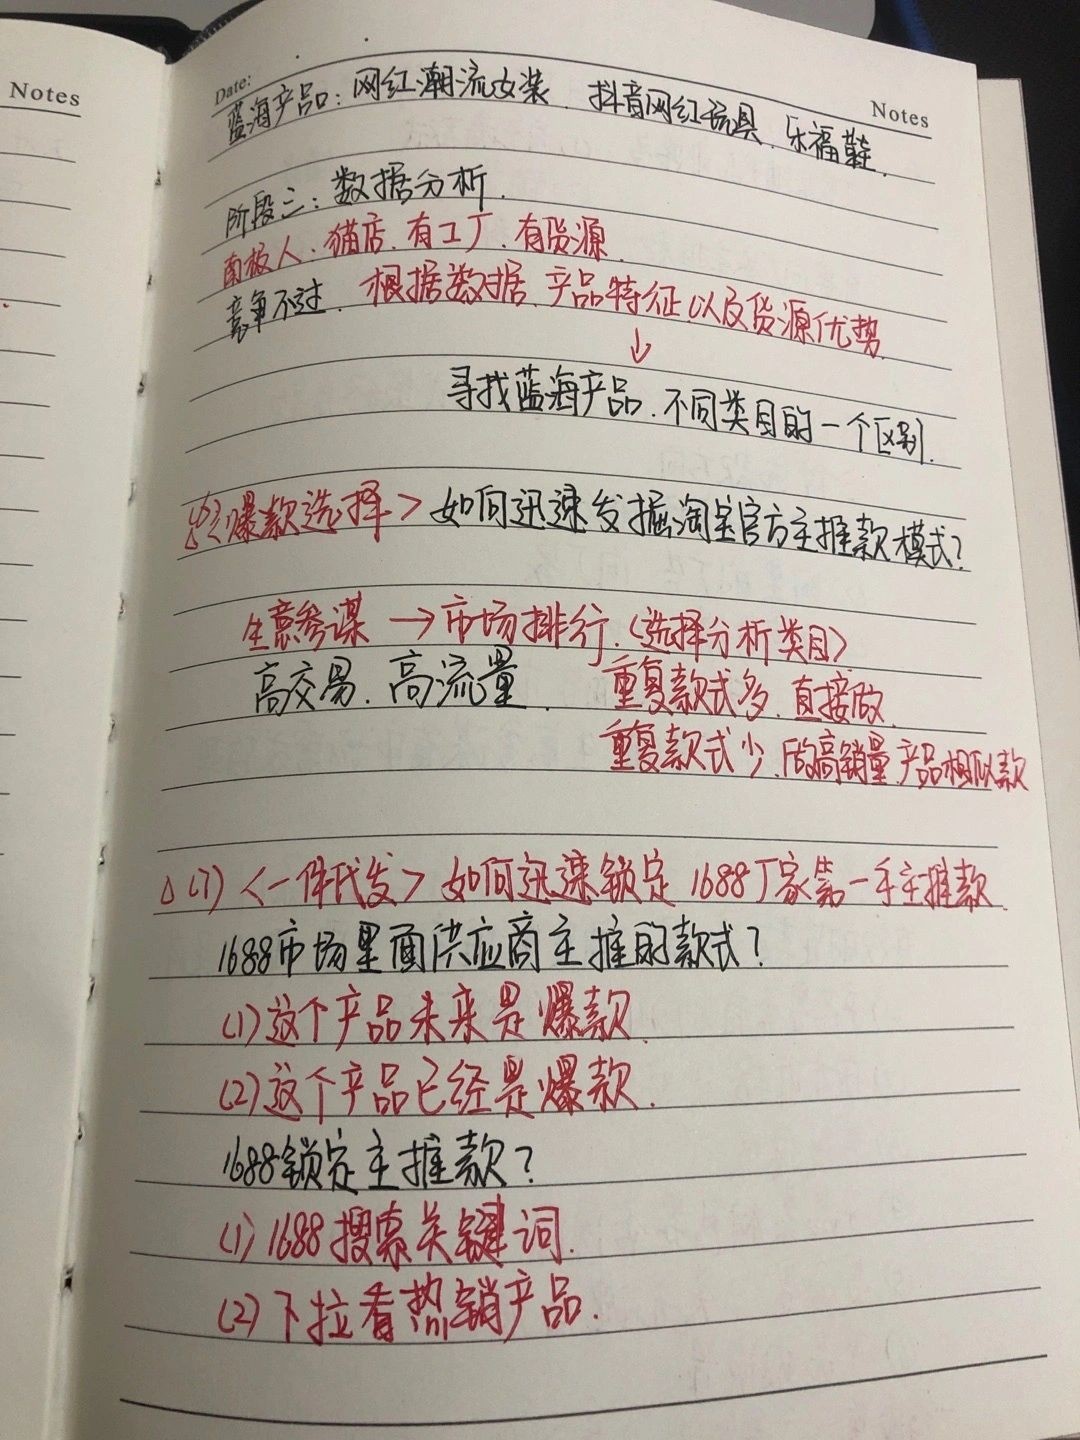 Notes
Date:
Notes
蓝海产品:网红潮流女装、抖音网红玩具、乐福鞋.
阶段三:数据分析.
南极人:猫店、有工厂、有货源.
竞争不过. 根据数据、产品特征、以及货源优势.
↓
寻找蓝海产品、不同类目的一个区别.
爆款选择> 如何迅速发掘淘宝官方主推款模式?
生意参谋 → 市场排行.(选择分析类目)
高交易、高流量. 重复款式多、直接做.
重复款式少、做高销量产品相似款
△(7)<一件代发> 如何迅速锁定1688厂家第一手主推款.
1688市场里面供应商主推的款式?
(1)这个产品未来是爆款.
(2)这个产品已经是爆款.
1688锁定主推款?
(1)1688搜索关键词.
(2)下拉看热销产品.